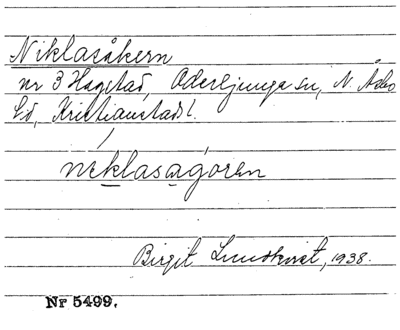 Niklasåkern
nr 3 Hagstad, Oderljunga sn, N. Åsbo
hd, Kristianstads l.
neklasagoren
Birgit Lundkvist, 1938.
Nr 5499.